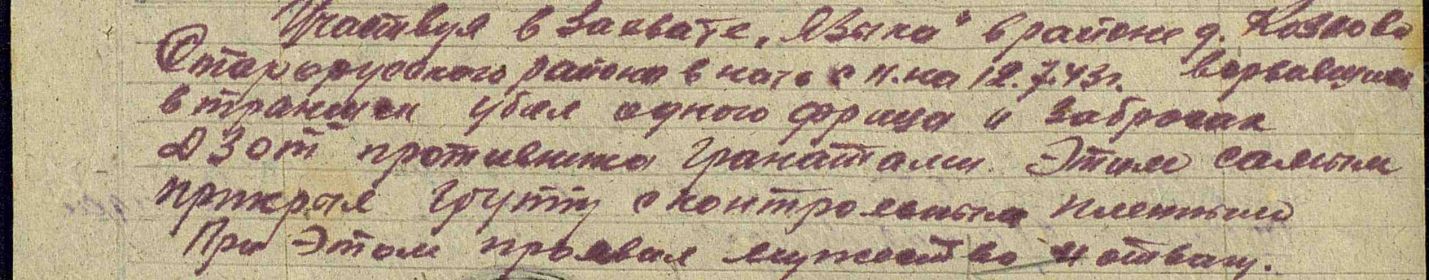 Участвуя в захвате „Языка" в районе д. Козлово
Старорусского района в ночь с 11. на 12.7.43г. ворвавшись
в траншеи убил одного фрица и забросал
ДЗОТ противника гранатами. Этим самым
прикрыл группу с контрольным пленным
При этом проявил мужество и отвагу.